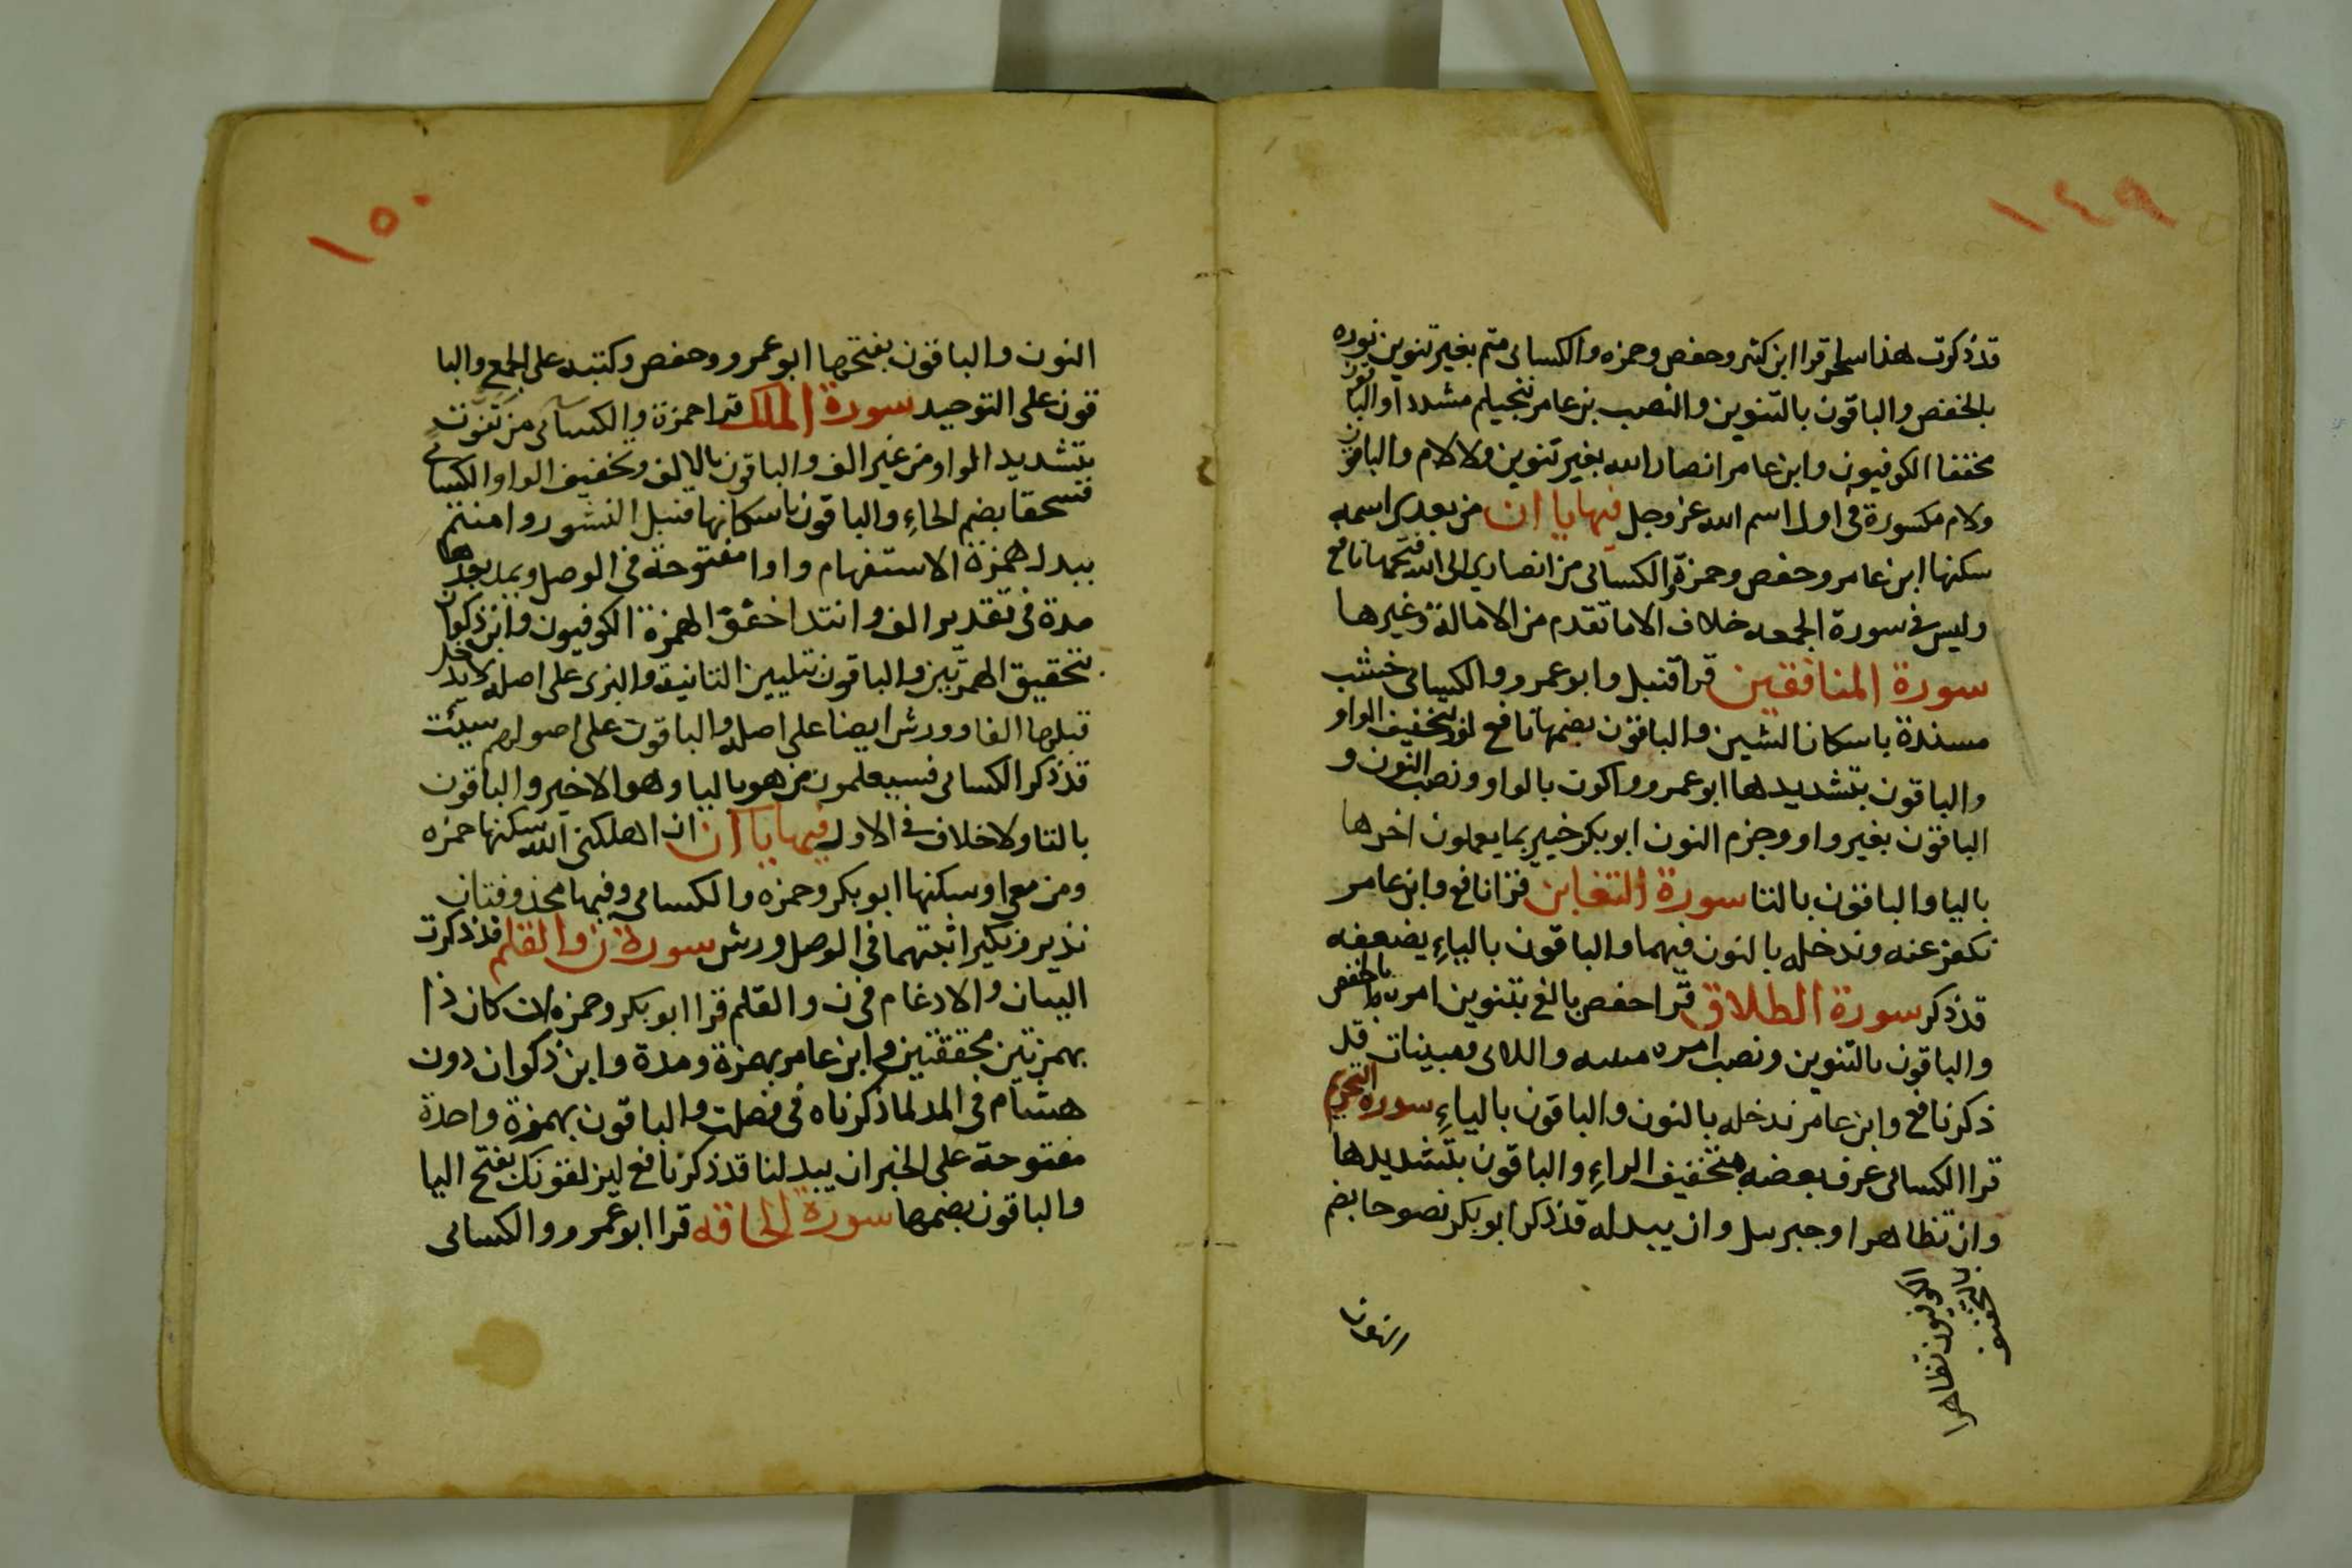 ١٤٩
قد ذكرت هذا سحر قرا ابن كثير وحفص وحمزه والكسائى متم بغير تنوين نوره
بالخفض والباقون بالتنوين والنصب بن عامر تنجيكم مشددا والباقون
مخففا الكوفيون وابن عامر انصار الله بغير تنوين ولا لام والباقون
ولام مكسورة فى اول اسم الله عز وجل فيها يا ان من بعدى اسمه
سكنها ابن عامر وحفص وحمزة والكسائى من انصارى الى الله فتحها نافع
وليس فى سورة الجمعه خلاف الا ما تقدم من الامالة وغيرها
سورة المنافقين قرا قنبل وابو عمرو والكسائى خشب
مسندة باسكان الشين والباقون بضمها نافع لووا بتخفيف الواو
والباقون بتشديدها ابو عمرو واكون بالواو ونصب النون و
الباقون بغير واو وجزم النون ابو بكر خبير بما يعملون اخرها
باليا والباقون بالتا سورة التغابن قرا نافع وابن عامر
نكفر عنه وندخله بالنون فيهما والباقون بالياءِ يضعفه
قد ذكر سورة الطلاق قرا حفص بالغ بتنوين امره بالخفض
والباقون بالتنوين ونصب امره مبينه واللاى ومبينات قد
ذكر نافع وابن عامر ندخله بالنون والباقون بالياءِ سورة التحريم
قرا الكسائى عرف بعضه بتخفيف الراءِ والباقون بتشديدها
وان تظاهرا وجبريل وان يبدله قد ذكر ابو بكر نصوحا بضم
الكوفيون تظاهرا
بالتخفيف
النون
١٥٠
النون والباقون بفتحها ابو عمرو وحفص وكتبه على الجمع والبا
قون على التوحيد سورة الملك قرا حمزة والكسائى من تفوت
بتشديد الواو من غير الف والباقون بالالف وتخفيف الواو الكسائى
فسحقا بضم الحاءِ والباقون باسكانها قنبل النشور وامنتم
يبدل همزة الاستفهام واوا مفتوحة فى الوصل ويمد بعدها
مدة فى تقدير الف وابتدا حقق الهمزة الكوفيون وابن ذكوان
بتحقيق الهمزتين والباقون بتليين الثانية والبزى على اصله لا يدخل
قبلها الفا وورش ايضا على اصله والباقون على اصولهم سيئت
قد ذكر الكسائى فسيعلمون من هو باليا وهو الاخير والباقون
بالتا ولا خلاف فى الاول فيها يا ان ان اهلكنى الله سكنها حمزه
ومن معى او سكنها ابو بكر وحمزه والكسائى وفيها محذوفتان
نذير ونكير اثبتهما فى الوصل ورش سورة ن والقلم قد ذكرت
البيان والادغام فى ن والقلم قرا ابو بكر وحمزه ان كان ذا
بهمزتين محققتين وابن عامر بهمزة ومدة وابن ذكوان دون
هشام فى المد لما ذكرناه فى فصلت والباقون بهمزة واحدة
مفتوحة على الخبر ان يبدلنا قد ذكر نافع ليزلقونك بفتح اليا
والباقون بضمها سورة الحاقه قرا ابو عمرو والكسائى